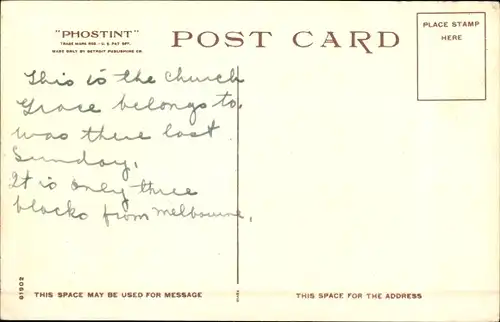 "PHOSTINT"
TRADE MARK REG. - U.S. PAT OFF.
MADE ONLY BY DETROIT PUBLISHING CO.
POST CARD
PLACE STAMP
HERE
This is the church
Grace belongs to,
was there last
Sunday,
It is only three
blocks from Melbourne,
61902
THIS SPACE MAY BE USED FOR MESSAGE
THIS SPACE FOR THE ADDRESS